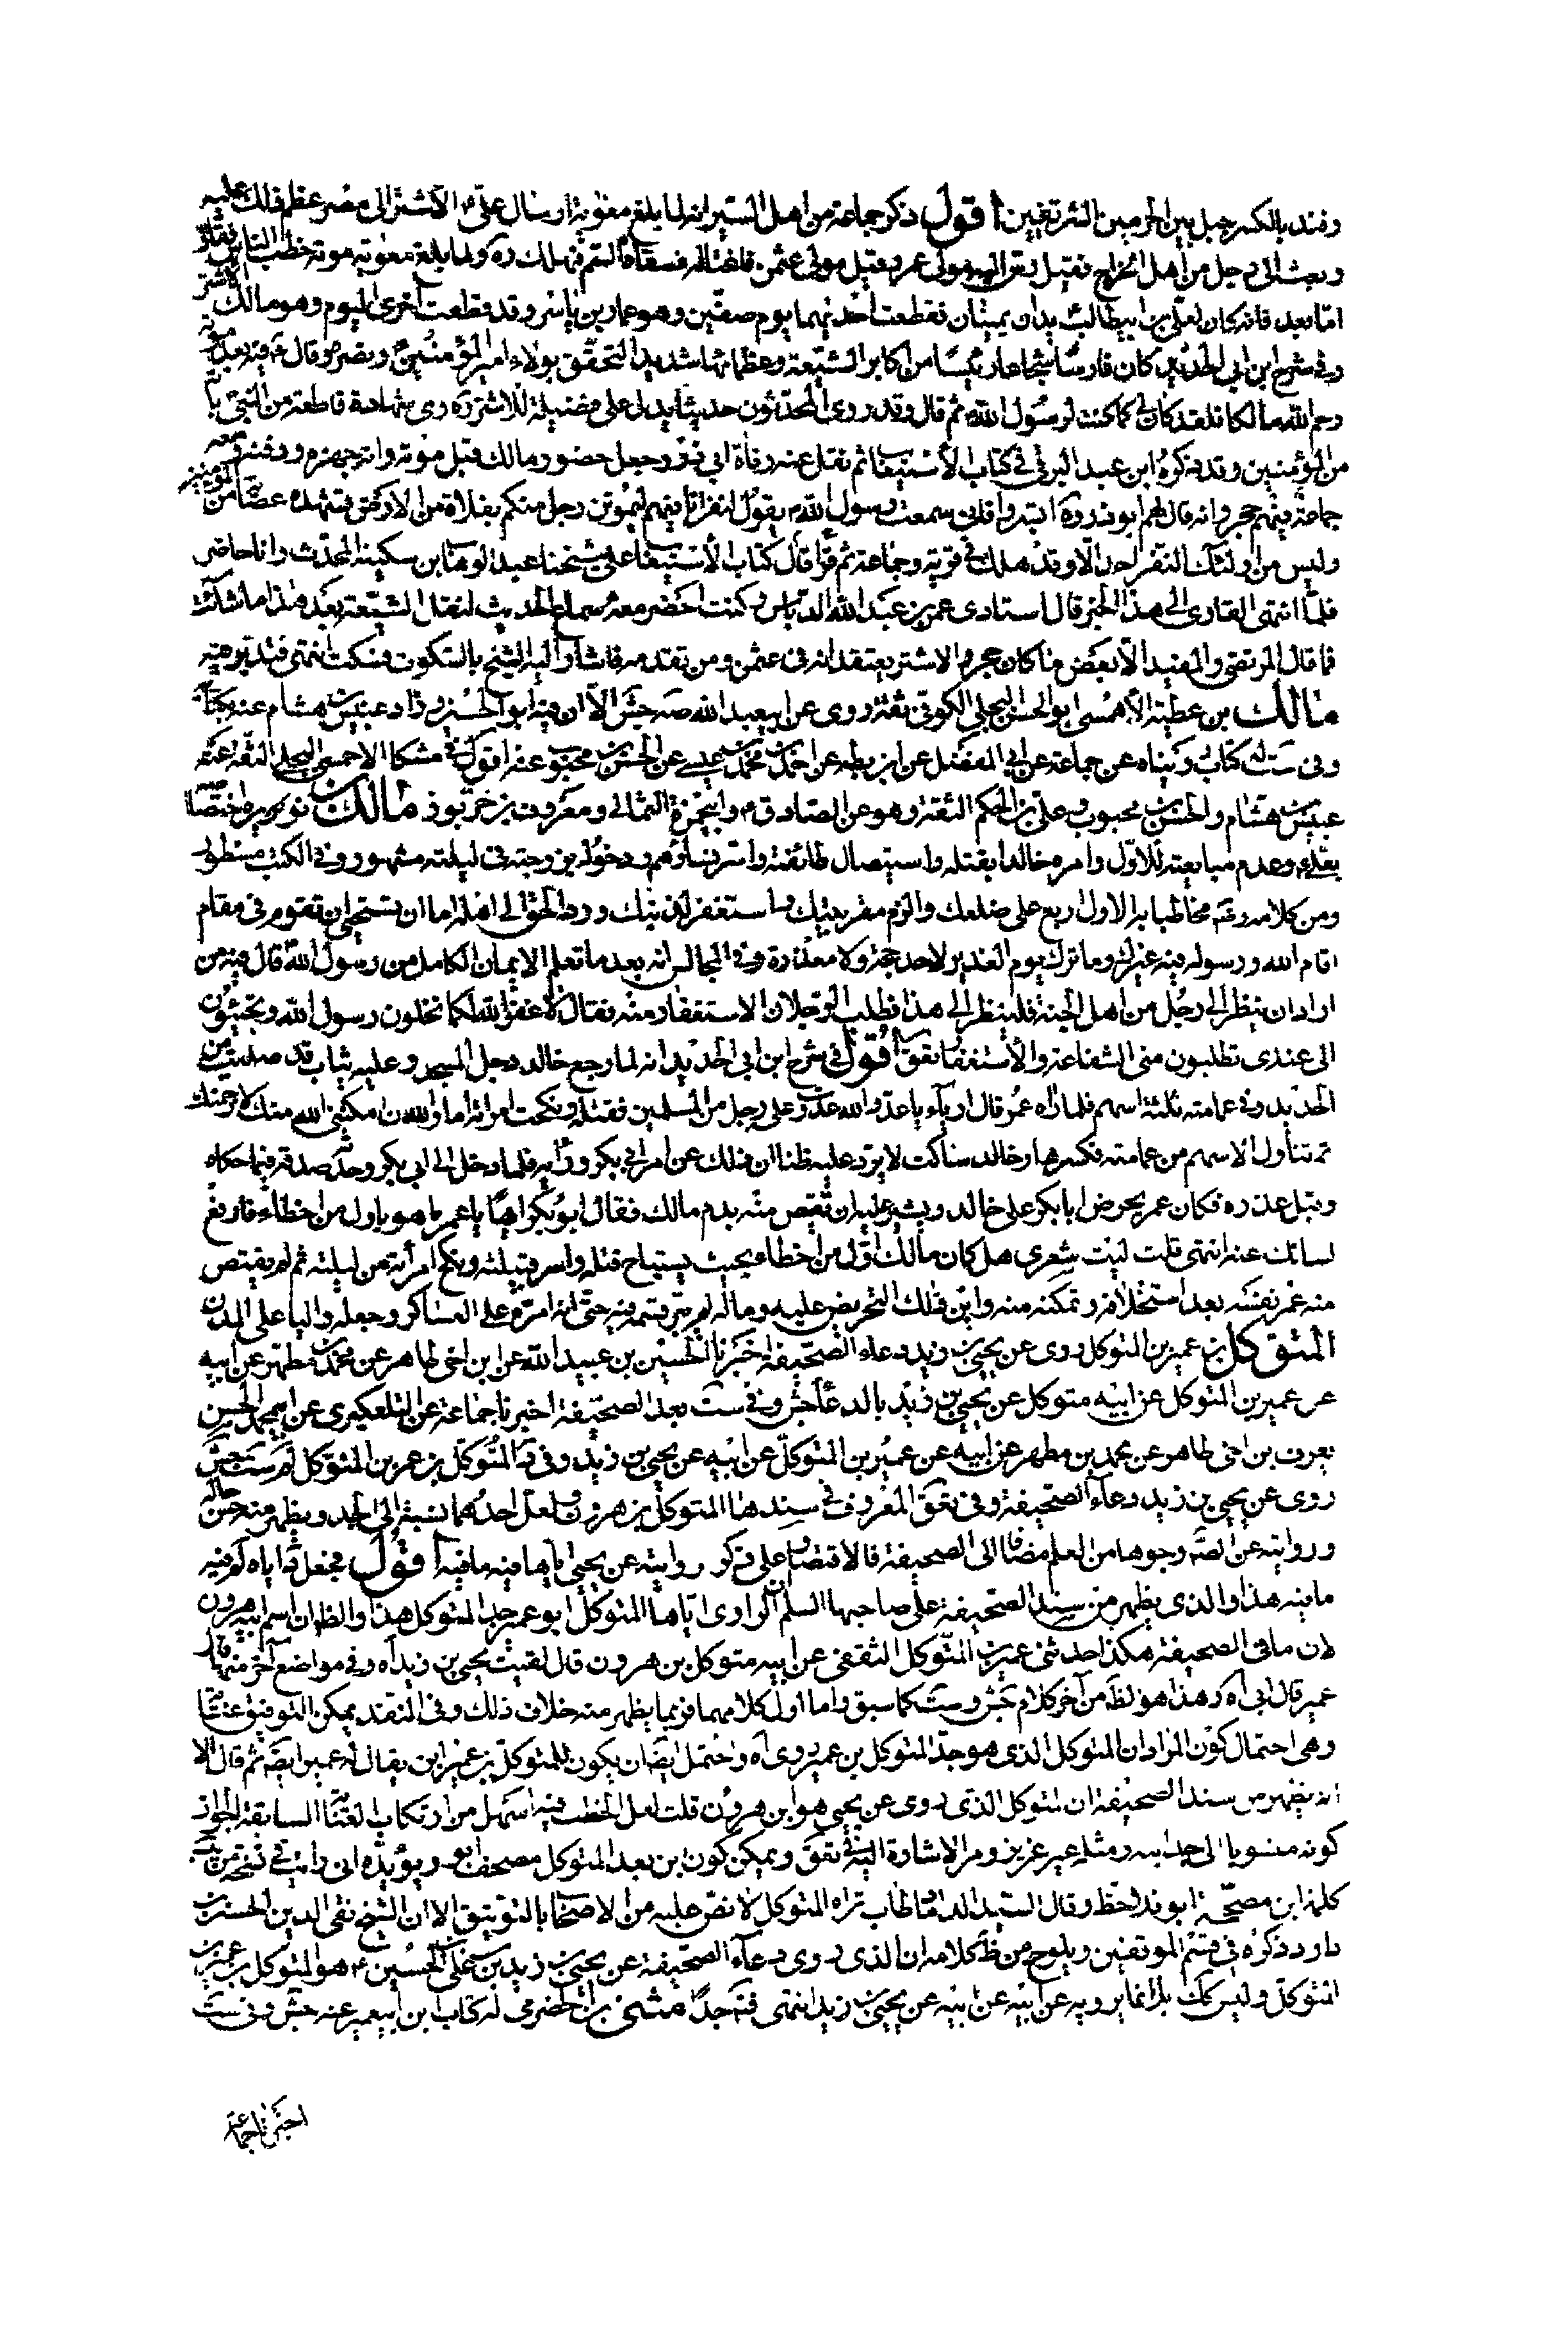 وفند بالكسر جبل بين الحرمين الشريفين أقول ذكر جماعة من اهل السير انه لما بلغ معوية ارسال علي الاشتر الى مصر عظم ذلك عليه
وبعث الى رجل من اهل الخراج فقيل بعث اليه مولى عمر وقيل مولى عثمن فاغتاله فسقاه السم فهلك ره ولما بلغ معوية موته خطب الناس فقال
اما بعد فانه كان لعلي بن ابيطالب يدان يمينان فقطعت احديهما يوم صفين وهو عمار بن ياسر وقد قطعت اخرى اليوم وهو مالك الاشتر
وفي شرح ابن ابي الحديد كان فارسا شجاعا رئيسا من اكابر الشيعة وعظمائها شديد التحقق بولاء امير المؤمنين ونصره وقال فيه بعد موته
رحم الله مالكا فلقد كان لي كما كنت لرسول الله ثم قال وقد روى المحدثون حديثا يدل على فضيلة للاشتر ره وى شهادة قاطعة من النبي بانه
من المؤمنين وقد ذكره ابن عبد البر في كتاب الاستيعاب ثم نقل عنه وفاة ابي ذر وجعل حضور مالك قبل موته وانه جهزه ودفنه ومعه
جماعة فيهم حجر وانه قال لهم ابو ذر ره ابشروا فاني سمعت رسول الله يقول لنفر انا فيهم ليموتن رجل منكم بفلاة من الارض يشهده عصابة من المؤمنين
وليس من اولئك النفر احد الا وقد هلك في قرية وجماعة ثم قرأ قال كتاب الاستيعاب على شيخنا عبد الوهاب بن سكينة المحدث وانا حاضر
فلما انتهى القارى الى هذا الخبر قال استادى عمر بن عبد الله الدباس وكنت احضر معه سماع الحديث لتقل الشيعة بعد هذا ما شائت
فما قال المرتضى والمفيد الا بعض ما كان حجر والاشتر يعتقدانه في عثمن ومن تقدمه فاشار اليه الشيخ بالسكوت فسكت انتهى فتدبر فيه
مالك بن عطية الاحمسي ابو الحسين البجلي الكوفي ثقة روى عن ابيعبد الله صه جش الا ان فيه ابو الحسين وزاد عبيس بن هشام عنه بكتابه
وفي ست له كتاب رويناه عن جماعة عن ابي المفضل عن ابن بطه عن احمد بن محمد بن عيسى عن الحسن بن محبوب عنه اقول في مشكا الاحمسي البجلي الثقة عنه
عبيس بن هشام والحسن بن محبوب وعلي بن الحكم الثقة وهو عن الصادق وابيحمزة الثمالي ومعروف بن خربوذ مالك بن نويره اختصاصه
بعلي وعدم مبايعته للاول وامره خالدا بقتله واستيصال طائفته واسر نساؤهم ودخوله بزوجته في ليلته مشهور وفي الكتب مسطور
ومن كلامه رضه مخاطبا به الاول اربع على ضلعك والزم مقر بيتك واستغفر لذنبك ورد الحق الى اهله اما ان تستحي ان تقوم في مقام
اقام الله ورسوله فيه غيرك وما ترك يوم الغدير لاحد حجة ولا معذرة وفي المجالس انه بعد ما تعلم الايمان الكامل من رسول الله قال فيه من
اراد ان ينظر الى رجل من اهل الجنة فلينظر الى هذا فطلب الرجلان الاستغفار منه فقال لا غفر الله لكما تخلون رسول الله وتجيئون
الى عندى تطلبون منى الشفاعة والاستغفار تعق أقول في شرح ابن ابي الحديد انه لما رجع خالد دخل المسجد وعليه ثياب قد صدئت من
الحديد وفي عمامته ثلثة اسهم فلما راه عمر قال ارياء يا عدو الله عدوت على رجل من المسلمين فقتلته ونكحت امراته اما والله ان امكننى الله منك لارجمنك
ثم تناول الاسهم من عمامته فكسرها وخالد ساكت لا يرد عليه ظنا ان ذلك عن امر ابي بكر ورأيه فلما دخل الى ابي بكر وحدثه صدقه فيما حكاه
وقبل عذره فكان عمر يحرض ابا بكر على خالد ويشير عليه ان يقتص منه بدم مالك فقال ابو بكر ايها يا عمر ما هو باول من اخطاء فارفع
لسانك عنه انتهى قلت ليت شعرى هل كان مالك اول من اخطاء بحيث يستباح قتله واسر قبيلته وينكح امرأته من ليلته ثم لم يقتص
منه عمر نفسه بعد استخلافه وتمكنه منه واين ذلك التحريض عليه وماله لم يبر قسمه فيه حتى انه امره على العساكر وجعله واليا على المدن
المتوكل بن عمير بن المتوكل روى عن يحيى بن زيد دعاء الصحيفة اخبرنا الحسين بن عبيد الله عن ابن اخى طاهر عن محمد بن مطهر عن ابيه
عن عمير بن المتوكل عن ابيه متوكل عن يحيى بن زيد بالدعاء جش وفي ست بعد الصحيفة اخبرنا جماعة عن التلعكبرى عن ابيمحمد الحسن
يعرف بن اخى طاهر عن محمد بن مطهر عن ابيه عن عمير بن المتوكل عن ابيه عن يحيى بن زيد وفي د المتوكل بن عمر بن المتوكل لم ست جش
روى عن يحيى بن زيد دعاء الصحيفة وفي تعق المعروف في سندها المتوكل بن هرون ولعل احدهما نسبة الى الجد ويظهر منه حسن حاله
وروايته عن الصه وجوها من العلم مضافا الى الصحيفة فالاقتصار على ذكر روايته عن يحيى اياها فيه ما فيه أقول في جعل ذا اياه لم فيه
ما فيه هذا والذى يظهر من سند الصحيفة على صاحبها السلم ان الراوى اياها المتوكل ابو عمر جد المتوكل هذا والظ ان اسم ابيه هرون
لان ما في الصحيفة هكذا حدثنى عمير بن المتوكل الثقفى عن ابيه متوكل بن هرون قال لقيت يحيى بن زيد اه وفي مواضع اخر منها قال
عمير قال ابى اه وهذا هو لظ من آخر كلام جش وست كما سبق واما اول كلامهما فربما يظهر منه خلاف ذلك وفي النقد يمكن التوفيق عنا
وهى احتمال كون المراد ان المتوكل الذى هو جد المتوكل بن عمير روى اه واحتمل ايضا ان يكون للمتوكل بن عمير ابن يقال له عمير ايضه ثم قال الا
انه يظهر من سند الصحيفة ان المتوكل الذى روى عن يحيى هو ابن هرون قلت لعل الخطب فيه اسهل من ارتكاب العناية السابقة لجواز
كونه منسوبا الى جد ابيه ومثله غير عزيز ومر الاشارة اليه في تعق ويمكن كون ابن بعد المتوكل مصحف ابو ويؤيده انى رايت في نسخة من
كلمة ابن مصححة ابو بدل لحظ وقال السيد الداماد طاب ثراه المتوكل لا نص عليه من الاصحاب بالتوثيق الا ان الشيخ تقي الدين الحسن بن
داود ذكره في قسم الموثقين ويلوح من ظ كلامه ان الذى روى دعاء الصحيفة عن يحيى بن زيد بن علي بن الحسين هو المتوكل بن عمير بن
المتوكل وليس كك بل انما يرويه عن ابيه عن ابيه عن يحيى بن زيد انتهى فته جدا مثنى بن الحضرمى له كتاب ابن ابيعمير عنه جش وفي ست
اخبرنا جماعة